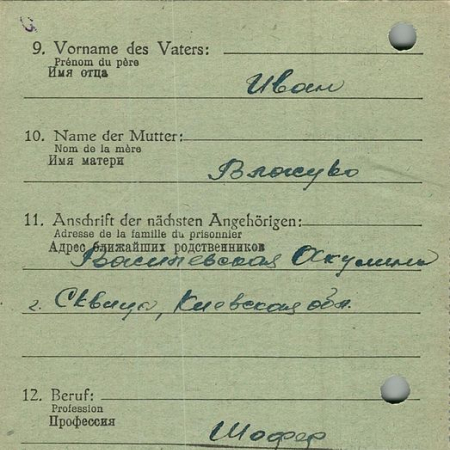 9. Vorname des Vaters:
Prénom du père
Имя отца
Иван
10. Name der Mutter:
Nom de la mère
Имя матери
11. Anschrift der nächsten Angehörigen:
Adresse de la famille du prisonnier
Адрес ближайших родственников
Василевская Акулина
г. Сквира, Киевская обл.
12. Beruf:
Profession
Профессия
Шофер